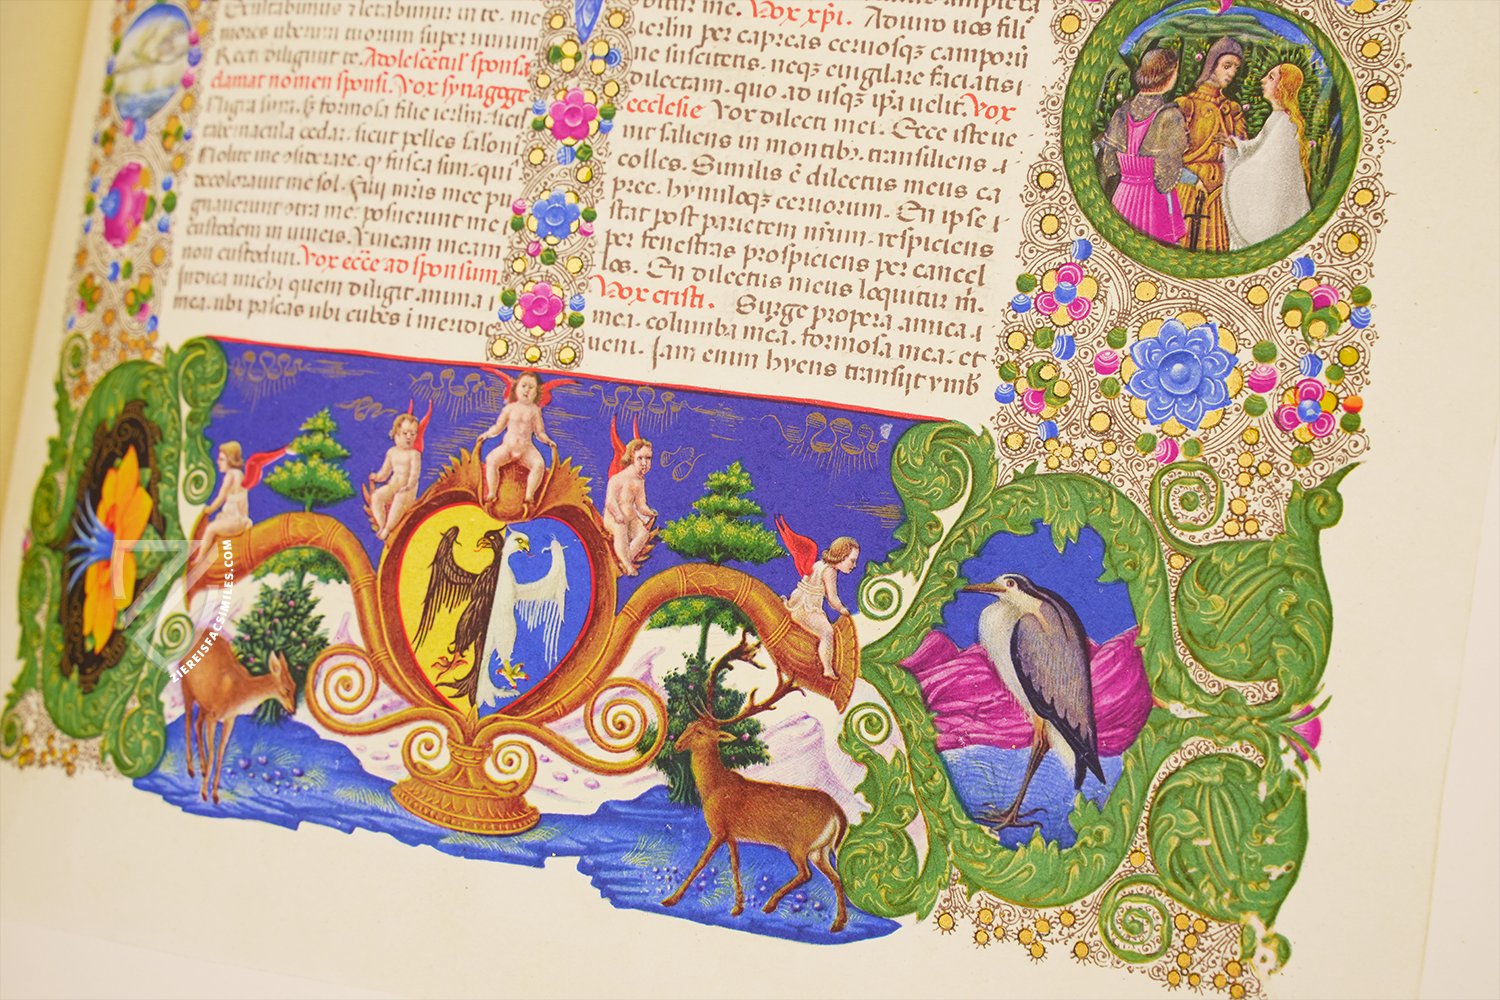 Exultabimus ⁊ letabimur in te. me
mores uberum tuorum super uinum
Recti diligunt te. Adolescētul' sponsa
clamat nomen sponsi. Vox synagoge
Nigra sum. sꝫ formosa filie ierłm. sicut
tabernacula cedar. sicut pelles saloni
Nolite me ɔsiderare. ꝙ fusca sim. qui
decolorauit me sol. Filij mr̄is mee pu
gnauerunt ɔtra me. posuerunt me i
custodem in uineis. Vineam meam
non custodiui. Vox ecc̄e ad sponsum
Indica michi quem diligit anima i
mea. ubi pascas ubi cubes i meridie
Vox xp̄i. Adiuro uos fili
ierłm per capreas ceruosqꝫ camporū
ne suscitetis. neqꝫ euigilare faciatis i
dilectam. quo ad usqꝫ ip̄a uelit. Vox
ecclesie Vox dilecti mei. Ecce iste ue
nit saliens in montibꝫ. transiliens i
colles. Similis ē dilectus meus ca
pree. hynuloqꝫ ceruorum. En ipse i
stat post parietem nr̄um. respiciens
per fenestras prospiciens per cancel
los. En dilectus meus loquitur m̄.
Vox cristi. Surge propera amica i
mea. columba mea. formosa mea. et
ueni. Iam enim hyens transijt ymb̄
ZIEREISFACSIMILES.COM